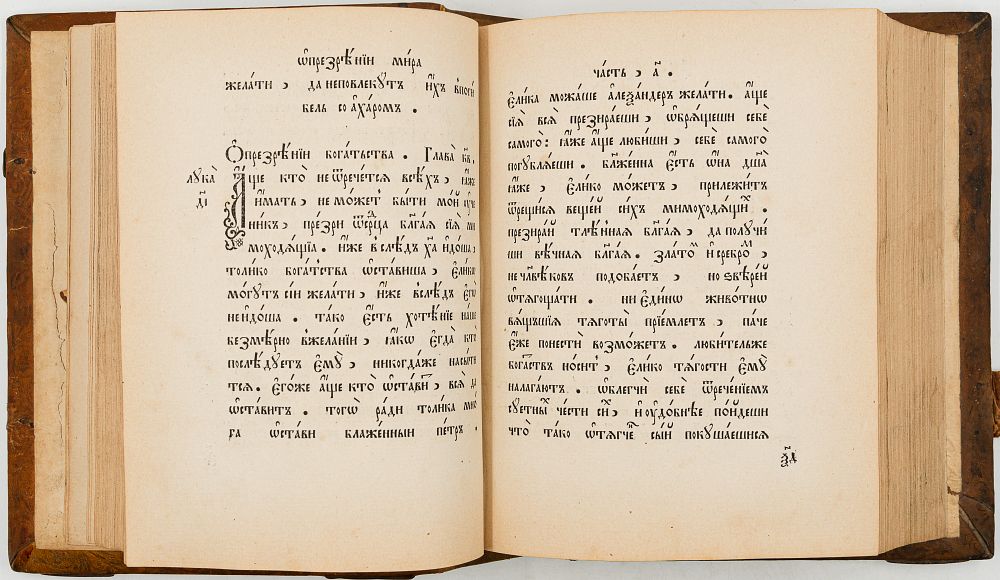 ѡ҆презрѣ́нїи ми́ра
жела́ти , да неповлекꙋтъ и҆́хъ впоги́
бель со а҆ха́ромъ .
Ѻ҆презрѣ́нїи бога́тьства . Глава̀ к҃в ,
лꙋка̀
д҃і
А҆́ще кто̀ не ѿрече́тся всѣ́хъ , ꙗ҆̀же
и҆́мать , не мо́жетъ бы́ти мо́й ᲂу҆че
ни́къ , презри ѿсрⷣца бл҃га́ѧ сїѧ̀ ми
моходѧ́щїѧ . и҆̀же вслѣ́дъ хрⷭ҇та̀ и҆до́ша ,
толи́ко бога́тства ѡ҆ста́виша , є҆ли́ко
мо́гꙋтъ сїи жела́ти , и҆́же вслѣ́дъ є҆гѡ̀
не и҆до́ша . та́ко є҆́сть хотѣ́нїе на́ше
безмѣ́рно вжела́нїи , ꙗ҆́кѡ є҆гда̀ кто̀
послѣ́дꙋетъ є҆мꙋ̀ , никогда́же насы́ти
тсѧ . є҆го́же а҆́ще кто̀ ѡ҆ста́ви , всѧ̀ да
ѡ҆ста́витъ . тогѡ̀ ра́ди толи́ка мно́
га ѡ҆ста́ви блаже́нныи пе́тръ .
ча́сть , а҃ .
Є҆ли́ка можа́ше а҆леѯа́ндеръ жела́ти . а҆́ще
сїѧ̀ всѧ̀ презира́еши , ѡ҆брѧ́щеши себе
самого̀ : ꙗ҆̀же а҆́ще лю́биши , себѐ самого̀
погꙋблѧ́еши . блаже́нна є҆́сть ѻ҆́на дш҃а̀
ꙗ҆́же , є҆ли́ко мо́жетъ , прилежи́тъ
ѿрещи́сѧ веще́й си́хъ мимоходѧ́щиⷯ .
презира́й тлѣ́ннаѧ бл҃га́ѧ , да полꙋчи́
ши вѣ́чнаѧ бл҃га́ѧ . зла́тоⷨ и҆ сребро́ⷨ ,
не человѣ́ковъ подоба́етъ , но ѕвѣре́й
ѡ҆тѧгоща́ти . ни є҆ди́но живо́тно
вѧ́щшїѧ тѧ́готы̀ прїе́млетъ , па́че
є҆́же понестѝ возмо́жетъ . люби́тельже
бога́ствъ но́ситъ , є҆ли́ко тѧ́гости є҆мꙋ̀
налага́ютъ . ѡ҆блегчѝ себѐ ѿрече́нїемъ
сꙋетныⷯ че́сти си́ⷯ , и҆ ᲂу҆до́бнѣе по́йдеши
что̀ та́ко ѡ҆тѧгче́ⷩ сы́й покꙋша́ешисѧ